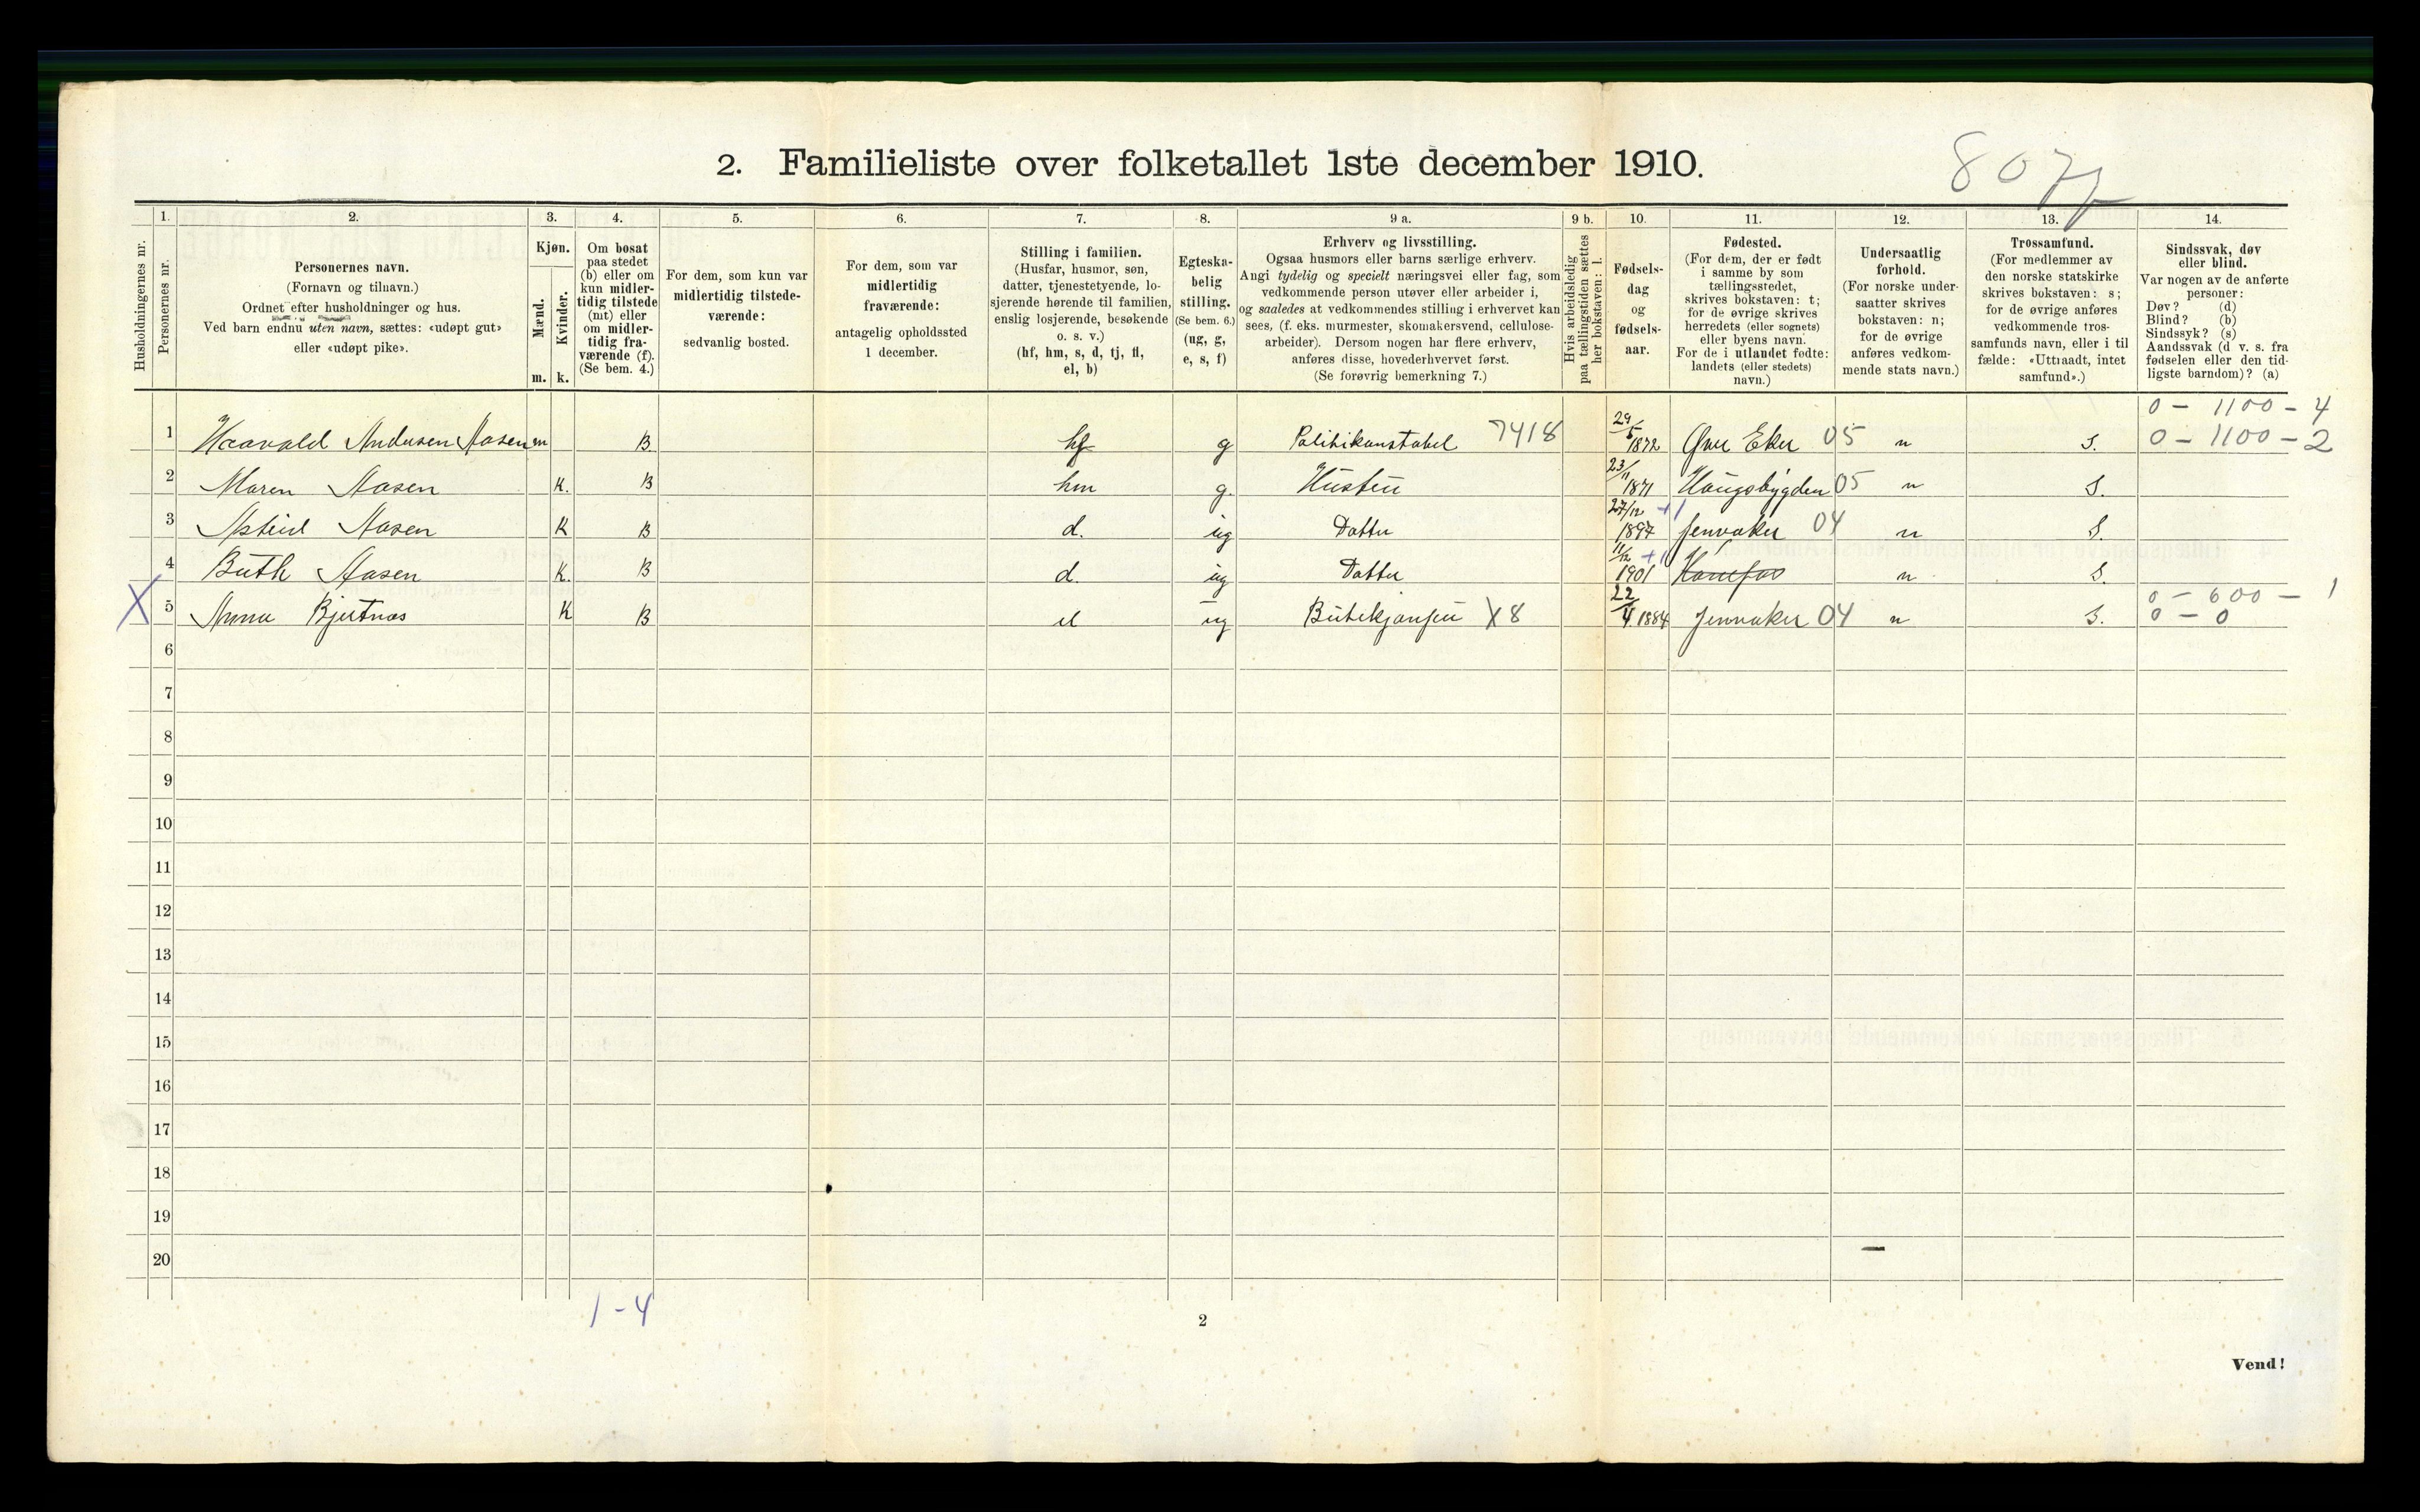 2. Familieliste over folketallet 1ste december 1910.
8077
1. 2. 3. 4. 5. 6. 7. 8. 9 a. 9 b. 10. 11. 12. 13. 14.
Husholdningernes nr.
Personernes nr.
Personernes navn.
(Fornavn og tilnavn.)
Ordnet efter husholdninger og hus.
Ved barn endnu uten navn, sættes: «udøpt gut»
eller «udøpt pike».
Kjøn.
Mænd.
Kvinder.
m. k.
Om bosat
paa stedet
(b) eller om
kun midler-
tidig tilstede
(mt) eller
om midler-
tidig fra-
værende (f).
(Se bem. 4.)
For dem, som kun var
midlertidig tilstede-
værende:
sedvanlig bosted.
For dem, som var
midlertidig
fraværende:
antagelig opholdssted
1 december.
Stilling i familien.
(Husfar, husmor, søn,
datter, tjenestetyende, lo-
sjerende hørende til familien,
enslig losjerende, besøkende
o. s. v.)
(hf, hm, s, d, tj, fl,
el, b)
Egteska-
belig
stilling.
(Se bem. 6.)
(ug, g,
e, s, f)
Erhverv og livsstilling.
Ogsaa husmors eller barns særlige erhverv.
Angi tydelig og specielt næringsvei eller fag, som
vedkommende person utøver eller arbeider i,
og saaledes at vedkommendes stilling i erhvervet kan
sees, (f. eks. murmester, skomakersvend, cellulose-
arbeider). Dersom nogen har flere erhverv,
anføres disse, hovederhvervet først.
(Se forøvrig bemerkning 7.)
Hvis arbeidsledig
paa tællingstiden sættes
her bokstaven: l.
Fødsels-
dag
og
fødsels-
aar.
Fødested.
(For dem, der er født
i samme by som
tællingsstedet,
skrives bokstaven: t;
for de øvrige skrives
herredets (eller sognets)
eller byens navn.
For de i utlandet fødte:
landets (eller stedets)
navn.)
Undersaatlig
forhold.
(For norske under-
saatter skrives
bokstaven: n;
for de øvrige
anføres vedkom-
mende stats navn.)
Trossamfund.
(For medlemmer av
den norske statskirke
skrives bokstaven: s;
for de øvrige anføres
vedkommende tros-
samfunds navn, eller i til
fælde: «Uttraadt, intet
samfund».)
Sindssvak, døv
eller blind.
Var nogen av de anførte
personer:
Døv? (d)
Blind? (b)
Sindssyk? (s)
Aandssvak (d v. s. fra
fødselen eller den tid-
ligste barndom)? (a)
0 - 1100 - 4
1 Haavald Andersen Aasen m B. hf g Politikonstabel 7418 29/5 1872 Øvre Eker 05 n S. 0 - 1100 - 2
2 Maren Aasen K. B hm g. Hustru 23/11 1871 Haugsbygden 05 n S.
3 Astrid Aasen K B d. ug Datter 27/12 +1 1897 Jevnaker 04 n S.
4 Ruth Aasen K. B d. ug Datter 11/12 +1 1901 Hønefos n S.
0 - 600 - 1
X 5 Anna Bjertnæs K B el ug Butikjomfru X8 22/4. 1884 Jevnaker 04 n S. 0 - 0
6
7
8
9
10
11
12
13
14
15
16
17
18
19
20
1-4
2
Vend!